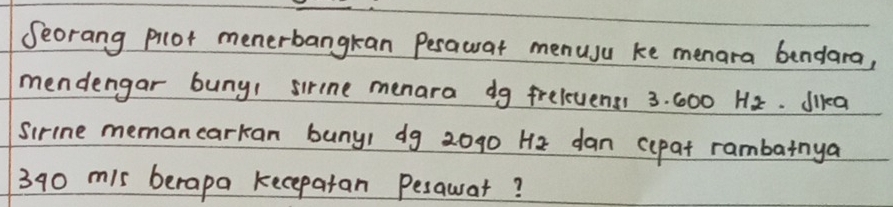 Seorang pilot menerbangkan Pesawat menuju ke menara bandara,
mendengar bunyi sirine menara dg frekuensi 3.600 Hz. Jika
sirine memancarkan bunyi dg 2040 Hz dan cepat rambatnya
340 m/s berapa kecepatan Pesawat ?